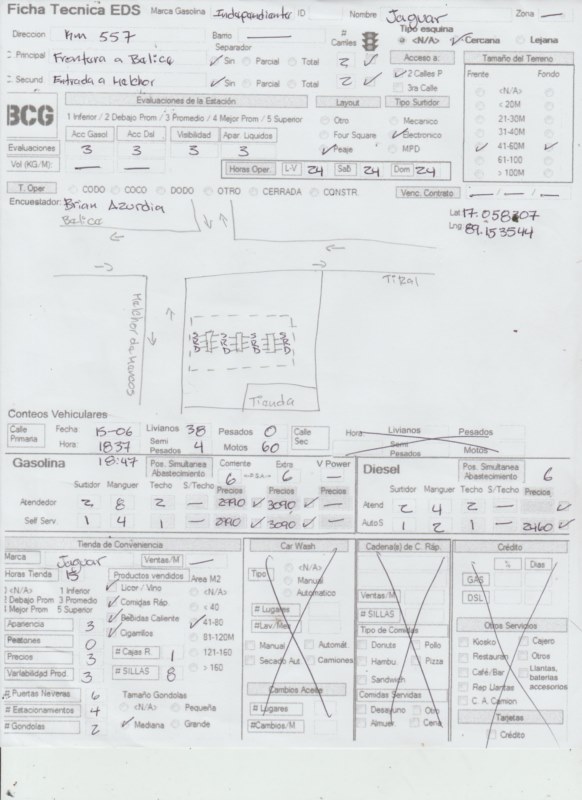 Ficha Tecnica EDS Marca Gasolina Independiente ID Nombre Jaguar Zona —
Direccion Km 557 Barrio — # Carriles Tipo esquina
Separador <N/A> Cercana Lejana
Principal Frontara a Belice Sin Parcial Total 2 Acceso a: Tamaño del Terreno
Secund. Entrada a Melchor Sin Parcial Total 2 2 Calles P Frente Fondo
3ra Calle <N/A>
BCG Evaluaciones de la Estación Layout Tipo Surtidor < 20M
1 Inferior / 2 Debajo Prom / 3 Promedio / 4 Mejor Prom / 5 Superior Otro Mecanico 21-30M
Acc Gasol Acc Dsl Visibilidad Apar. Liquidos Four Square Electronico 31-40M
Evaluaciones 3 3 3 3 Peaje MPD 41-60M
Vol (KG/M): — — Horas Oper. L-V 24 Sab 24 Dom 24 61-100
> 100M
T. Oper CODO COCO DODO OTRO CERRADA CONSTR. Venc. Contrato — / — / —
Encuestador: Brian Azurdia
Belice
Lat 17.058207
Lng 89.153544
Tikal
Melchor de Mencos
S R D S R D S R D
Tienda
Conteos Vehiculares
Calle Primaria Fecha 15-06 Livianos 38 Pesados 0 Calle Sec Hora Livianos Pesados
Hora: 1837 Semi Pesados 4 Motos 60 Semi Pesados Motos
18:47
Gasolina Pos. Simultanea Abastecimiento Corriente 6 Extra 6 V Power — Diesel Pos. Simultanea Abastecimiento 6
Surtidor Manguer Techo S/Techo Precios Precios Precios Surtidor Manguer Techo S/Techo Precios
Atendedor 2 8 2 — 2990 3090 — Atend 2 4 2 — —
Self Serv 1 4 1 — 2990 3090 — Auto S 1 2 1 — 2460
Tienda de Conveniencia Car Wash Cadena(s) de C. Ráp. Crédito
Marca Jaguar Ventas/M — % Dias
Horas Tienda 15 Productos vendidos Area M2 Tipo <N/A> GAS
<N/A> 1 Inferior Licor / Vino <N/A> Manual Ventas/M DSL
Debajo Prom 3 Promedio Comidas Ráp < 40 Automatico # SILLAS
Mejor Prom 5 Superior Bebidas Caliente 41-80 # Lugares Tipo de Comidas Otros Servicios
Apariencia 3 Cigarrillos 81-120M # Lav./Mes Donuts Pollo Kiosko Cajero
Peatones 0 # Cajas R. 1 121-160 Manual Automát. Hambu Pizza Restauran Otros
Precios 3 # SILLAS 8 > 160 Secado Aut Camiones Sandwich Café/Bar Llantas, baterias accesorios
Variabilidad Prod. 3 Rep Llantas
# Puertas Neveras 6 Tamaño Gondolas Cambios Aceite Comidas Servidas C. A. Camion
# Estacionamientos 4 <N/A> Pequeña # Lugares Desayuno Otro Tarjetas
# Gondolas 2 Mediana Grande # Cambios/M Almuer Cena Crédito